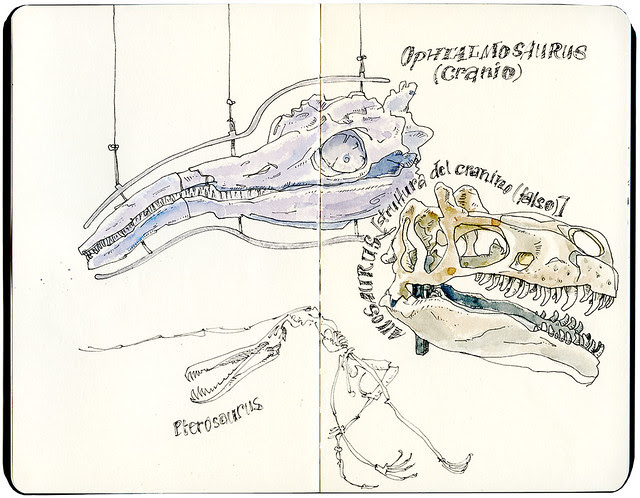 OPHTALMOSAURUS
(Cranio)
AllOSAURUS [struttura del cranino (falso)]
Pterosaurus